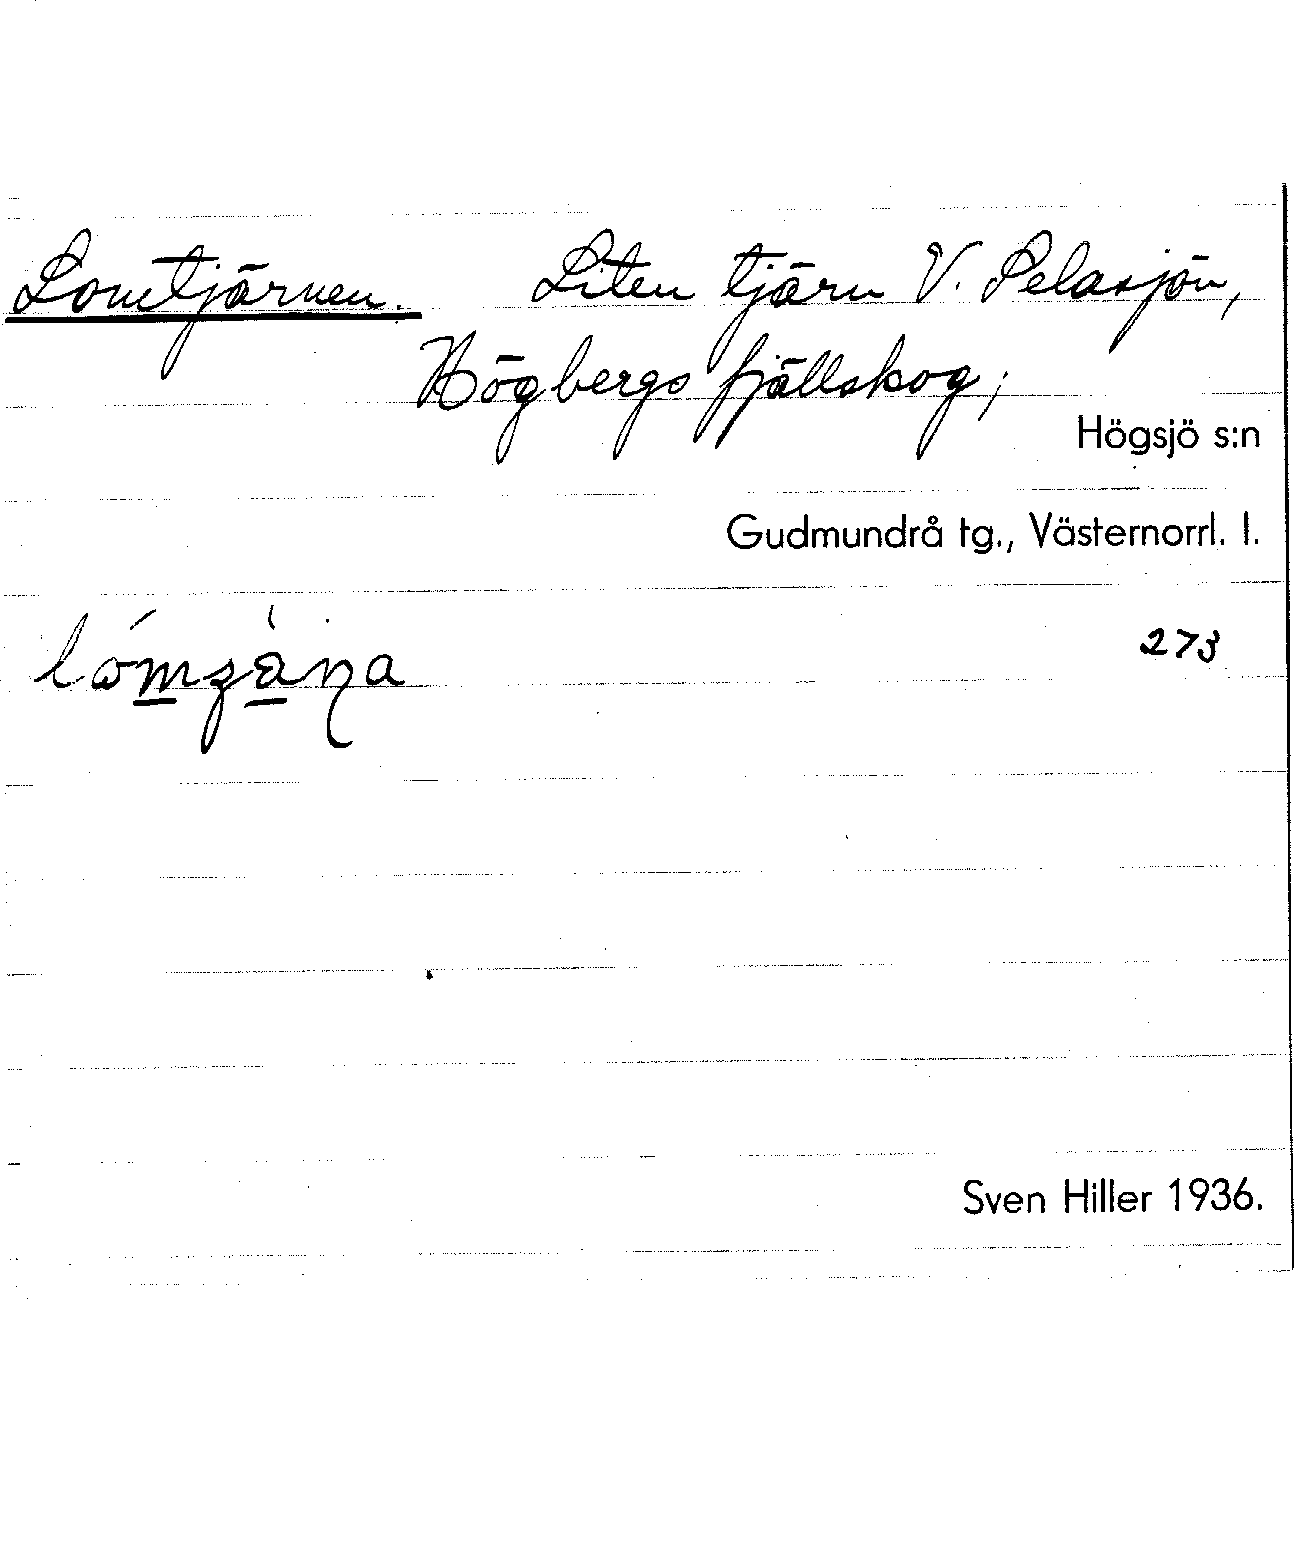 Lomtjärnen. Liten tjärn V. Selasjön,
Högbergs fjällskog,
Högsjö s:n
Gudmundrå tg., Västernorrl. l.
273
Sven Hiller 1936.